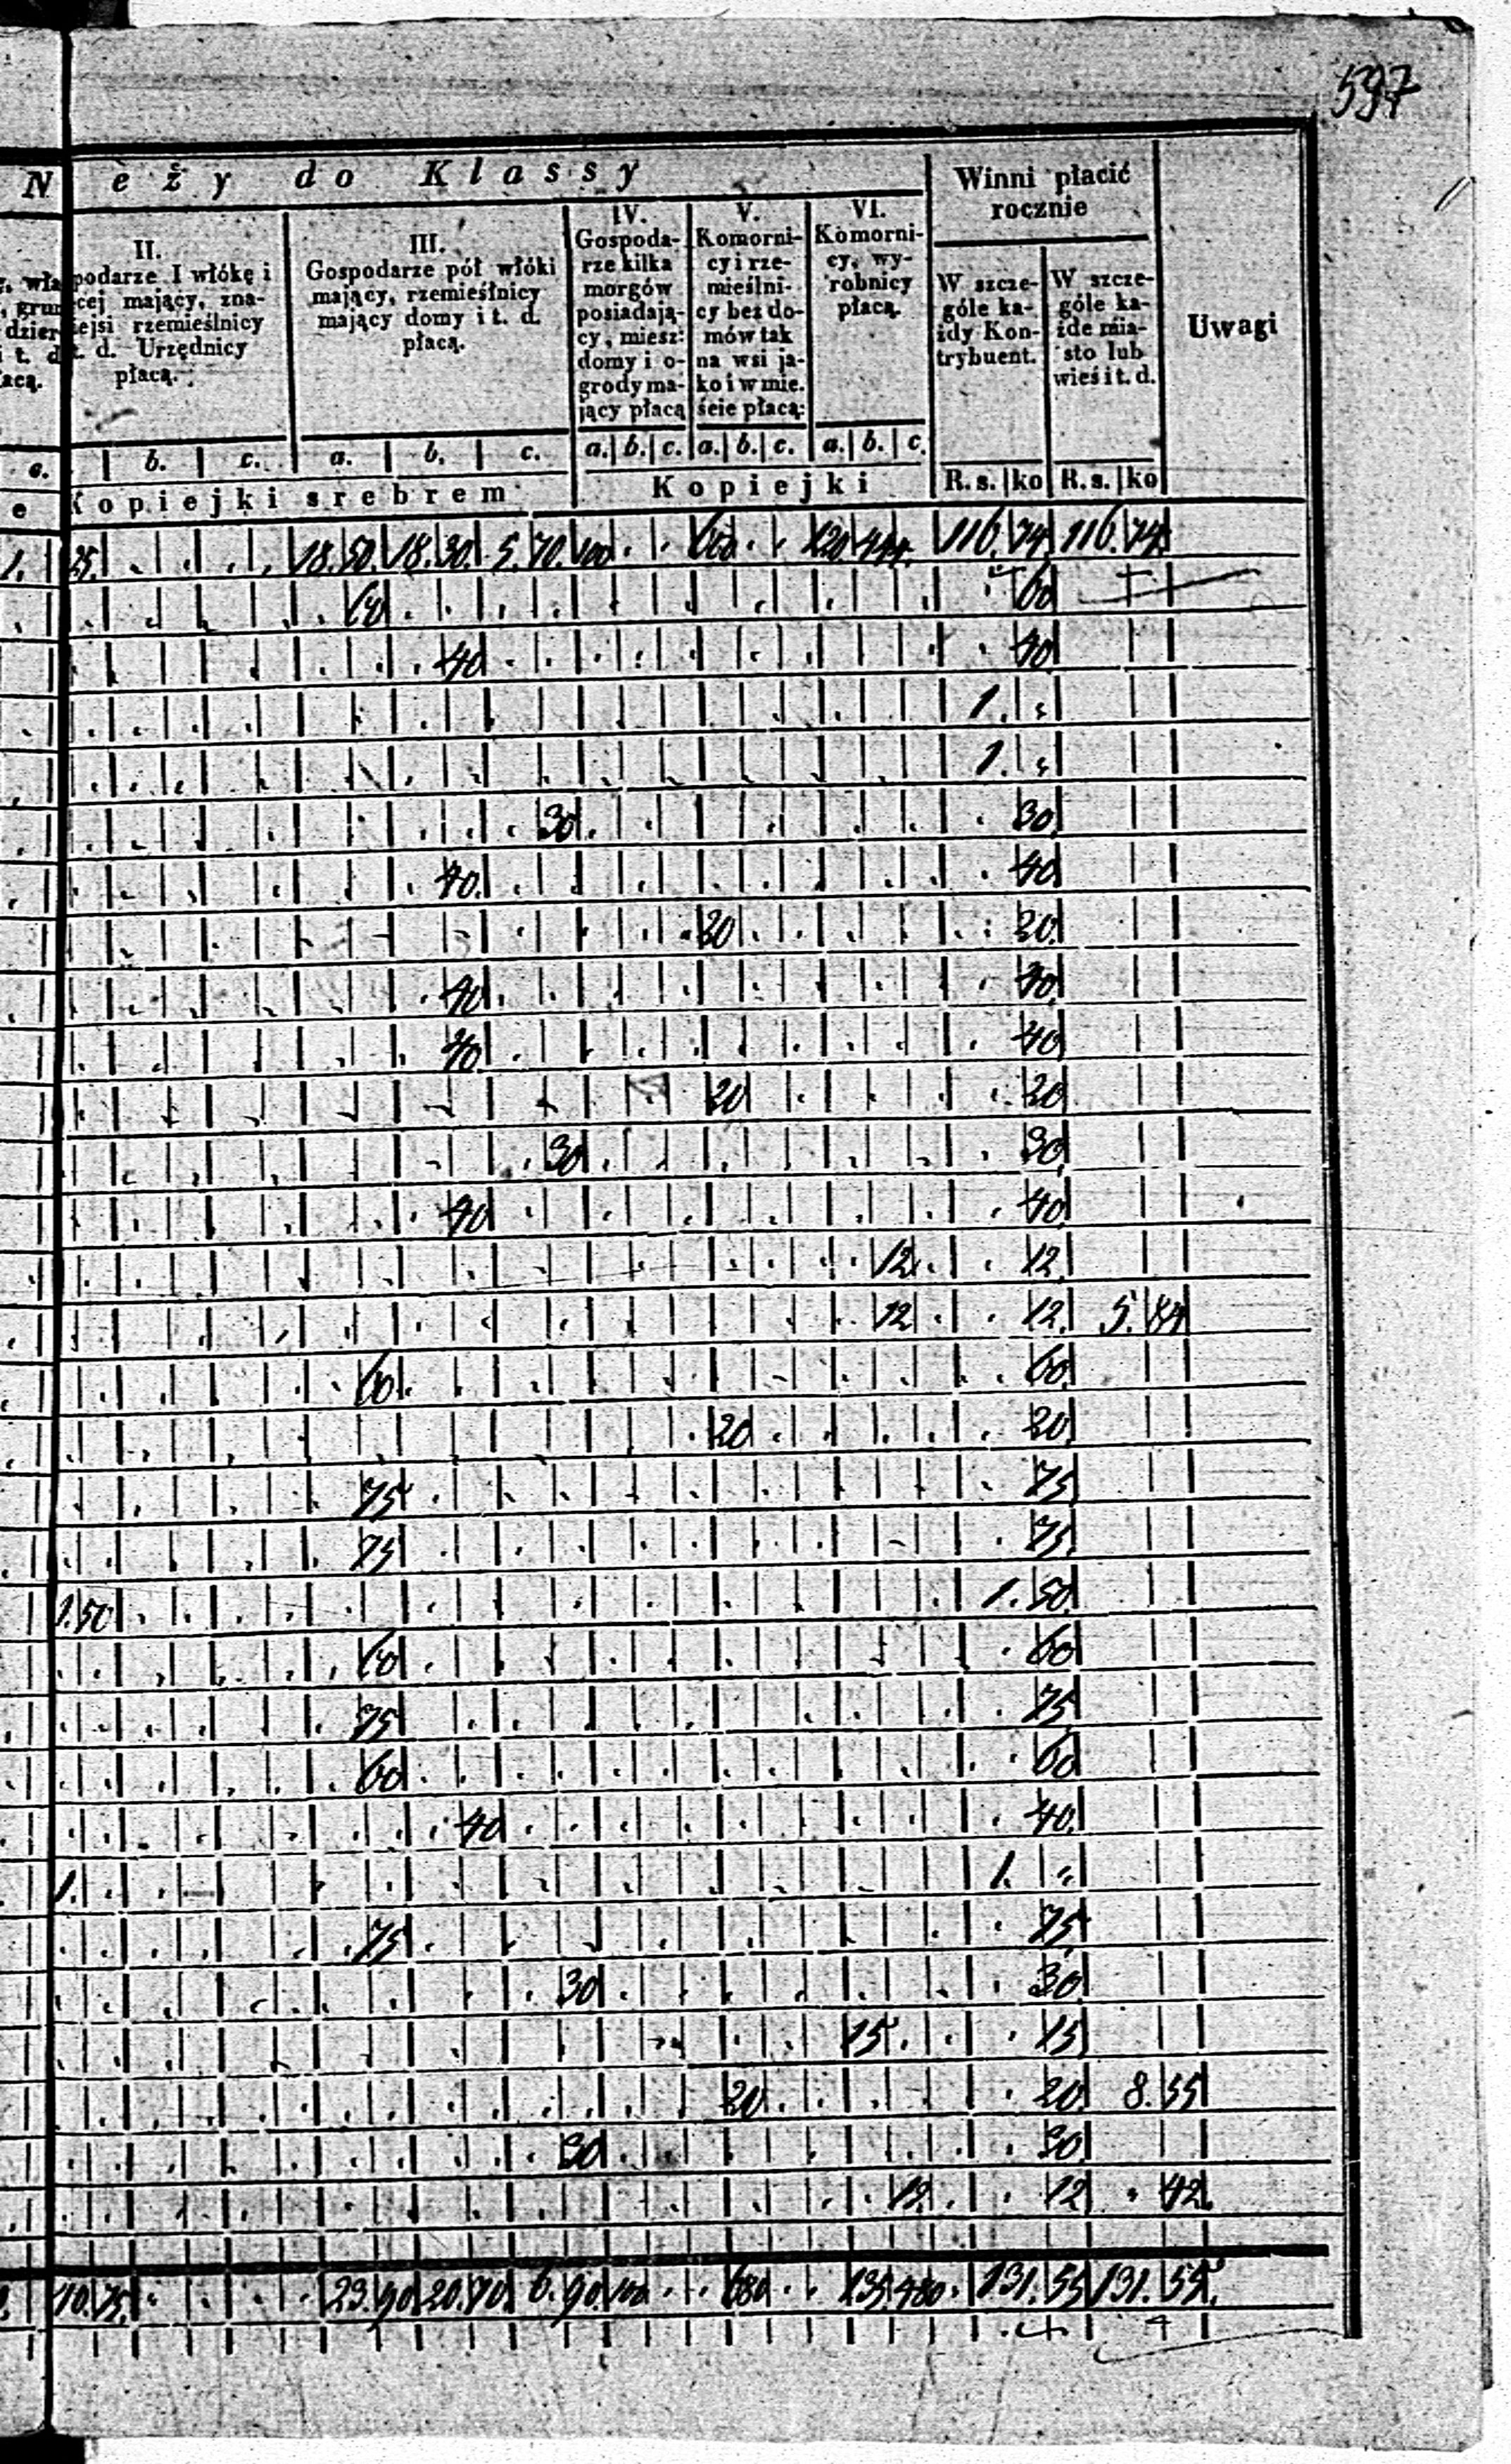 597
N e ż y do Klassy
Winni płacić
rocznie
Uwagi
II.
podarze I włókę i
cej mający, zna-
ejsi rzemieślnicy
t. d. Urzędnicy
płacą.
III.
Gospodarze pół włóki
mający, rzemieślnicy
mający domy i t. d.
płacą.
IV.
Gospoda-
rze kilka
morgów
posiadają-
cy, miesz:
domy i o-
grody ma-
jący płacą
V.
Komorni-
cy i rze-
mieślni-
cy bez do-
mów tak
na wsi ja-
ko i w mie.
ście płacą:
VI.
Komorni-
cy, wy-
robnicy
płacą.
W szcze-
góle ka-
żdy Kon-
trybuent.
W szcze-
góle ka-
żde mia-
sto lub
wieś i t. d.
b. c. a. b. c. a. b. c. a. b. c. a. b. c.
Kopiejki srebrem Kopiejki R. s. ko R. s. ko
1. 25. 18. 50. 18. 30. 5. 70. 100 120 444. 116. 74. 116. 74.
60 60
40 40
1.
1.
30 30
40 40
20 20
40 40
40 40
20 20
30 30
40 40
12 12
12 12 5. 84
60 60
20 20
75 75
75 75
1. 50 1. 50
60 60
75 75
60 60
40 40
1. 1.
75 75
30 30
15 15
20 20 8. 55
30 30
12 12 42
10. 75. 23. 90 20. 70 6. 90. 100 680 135 480. 131. 55 131. 55.